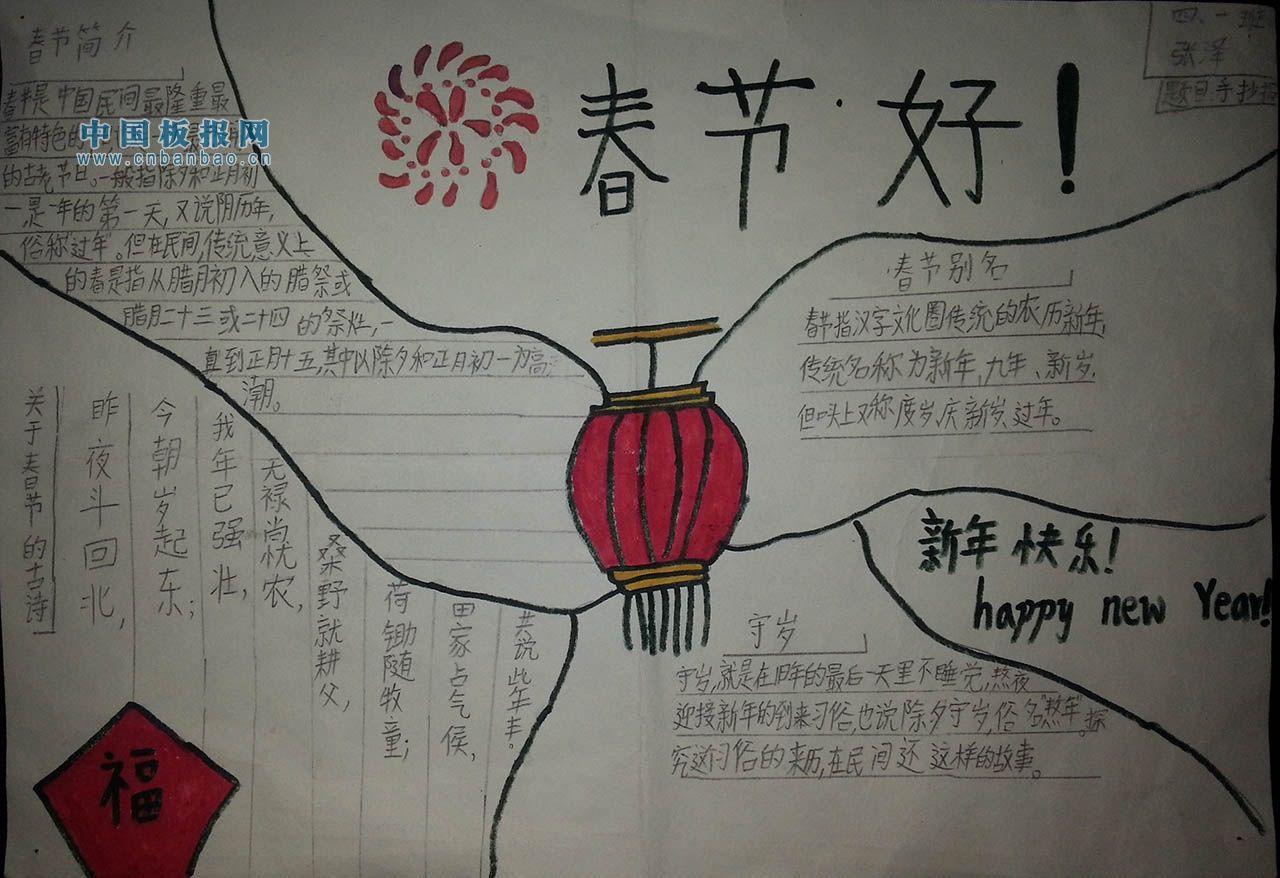 春节好！
四、一班
张泽
题目手抄报
春节简介
春节是中国民间最隆重最
富有特色的
的古老节日。一般指除夕和正月初
一是一年的第一天，又说阴历年，
俗称"过年"。但在民间，传统意义上
的春是指从腊月初入的腊祭或
腊月二十三或二十四的祭灶，一
直到正月十五，其中以除夕和正月初一为高
潮。
中国板报网
www.cnbanbao.cn
春节别名
春节指汉字文化圈传统的农历新年，
传统名称为新年，九年、新岁，
但口头上又称度岁、庆新岁、过年。
新年快乐！
happy new Year!
守岁
守岁，就是在旧年的最后一天里不睡觉，熬夜
迎接新年的到来习俗，也说除夕守岁，俗名"熬年"。探
究这习俗的来历，在民间还这样的故事。
关于春节的古诗
昨夜斗回北，
今朝岁起东；
我年已强壮，
无禄尚忧农，
桑野就耕父，
荷锄随牧童；
田家占气侯，
共说此年丰。
福